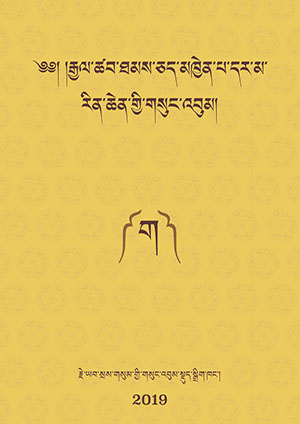 ༄༅། །རྒྱལ་ཚབ་ཐམས་ཅད་མཁྱེན་པ་དར་མ་
རིན་ཆེན་གྱི་གསུང་འབུམ།
༼ག༽
རྗེ་ཡབ་སྲས་གསུམ་གྱི་གསུང་འབུམ་སྡུད་སྒྲིག་ཁང་།
2019